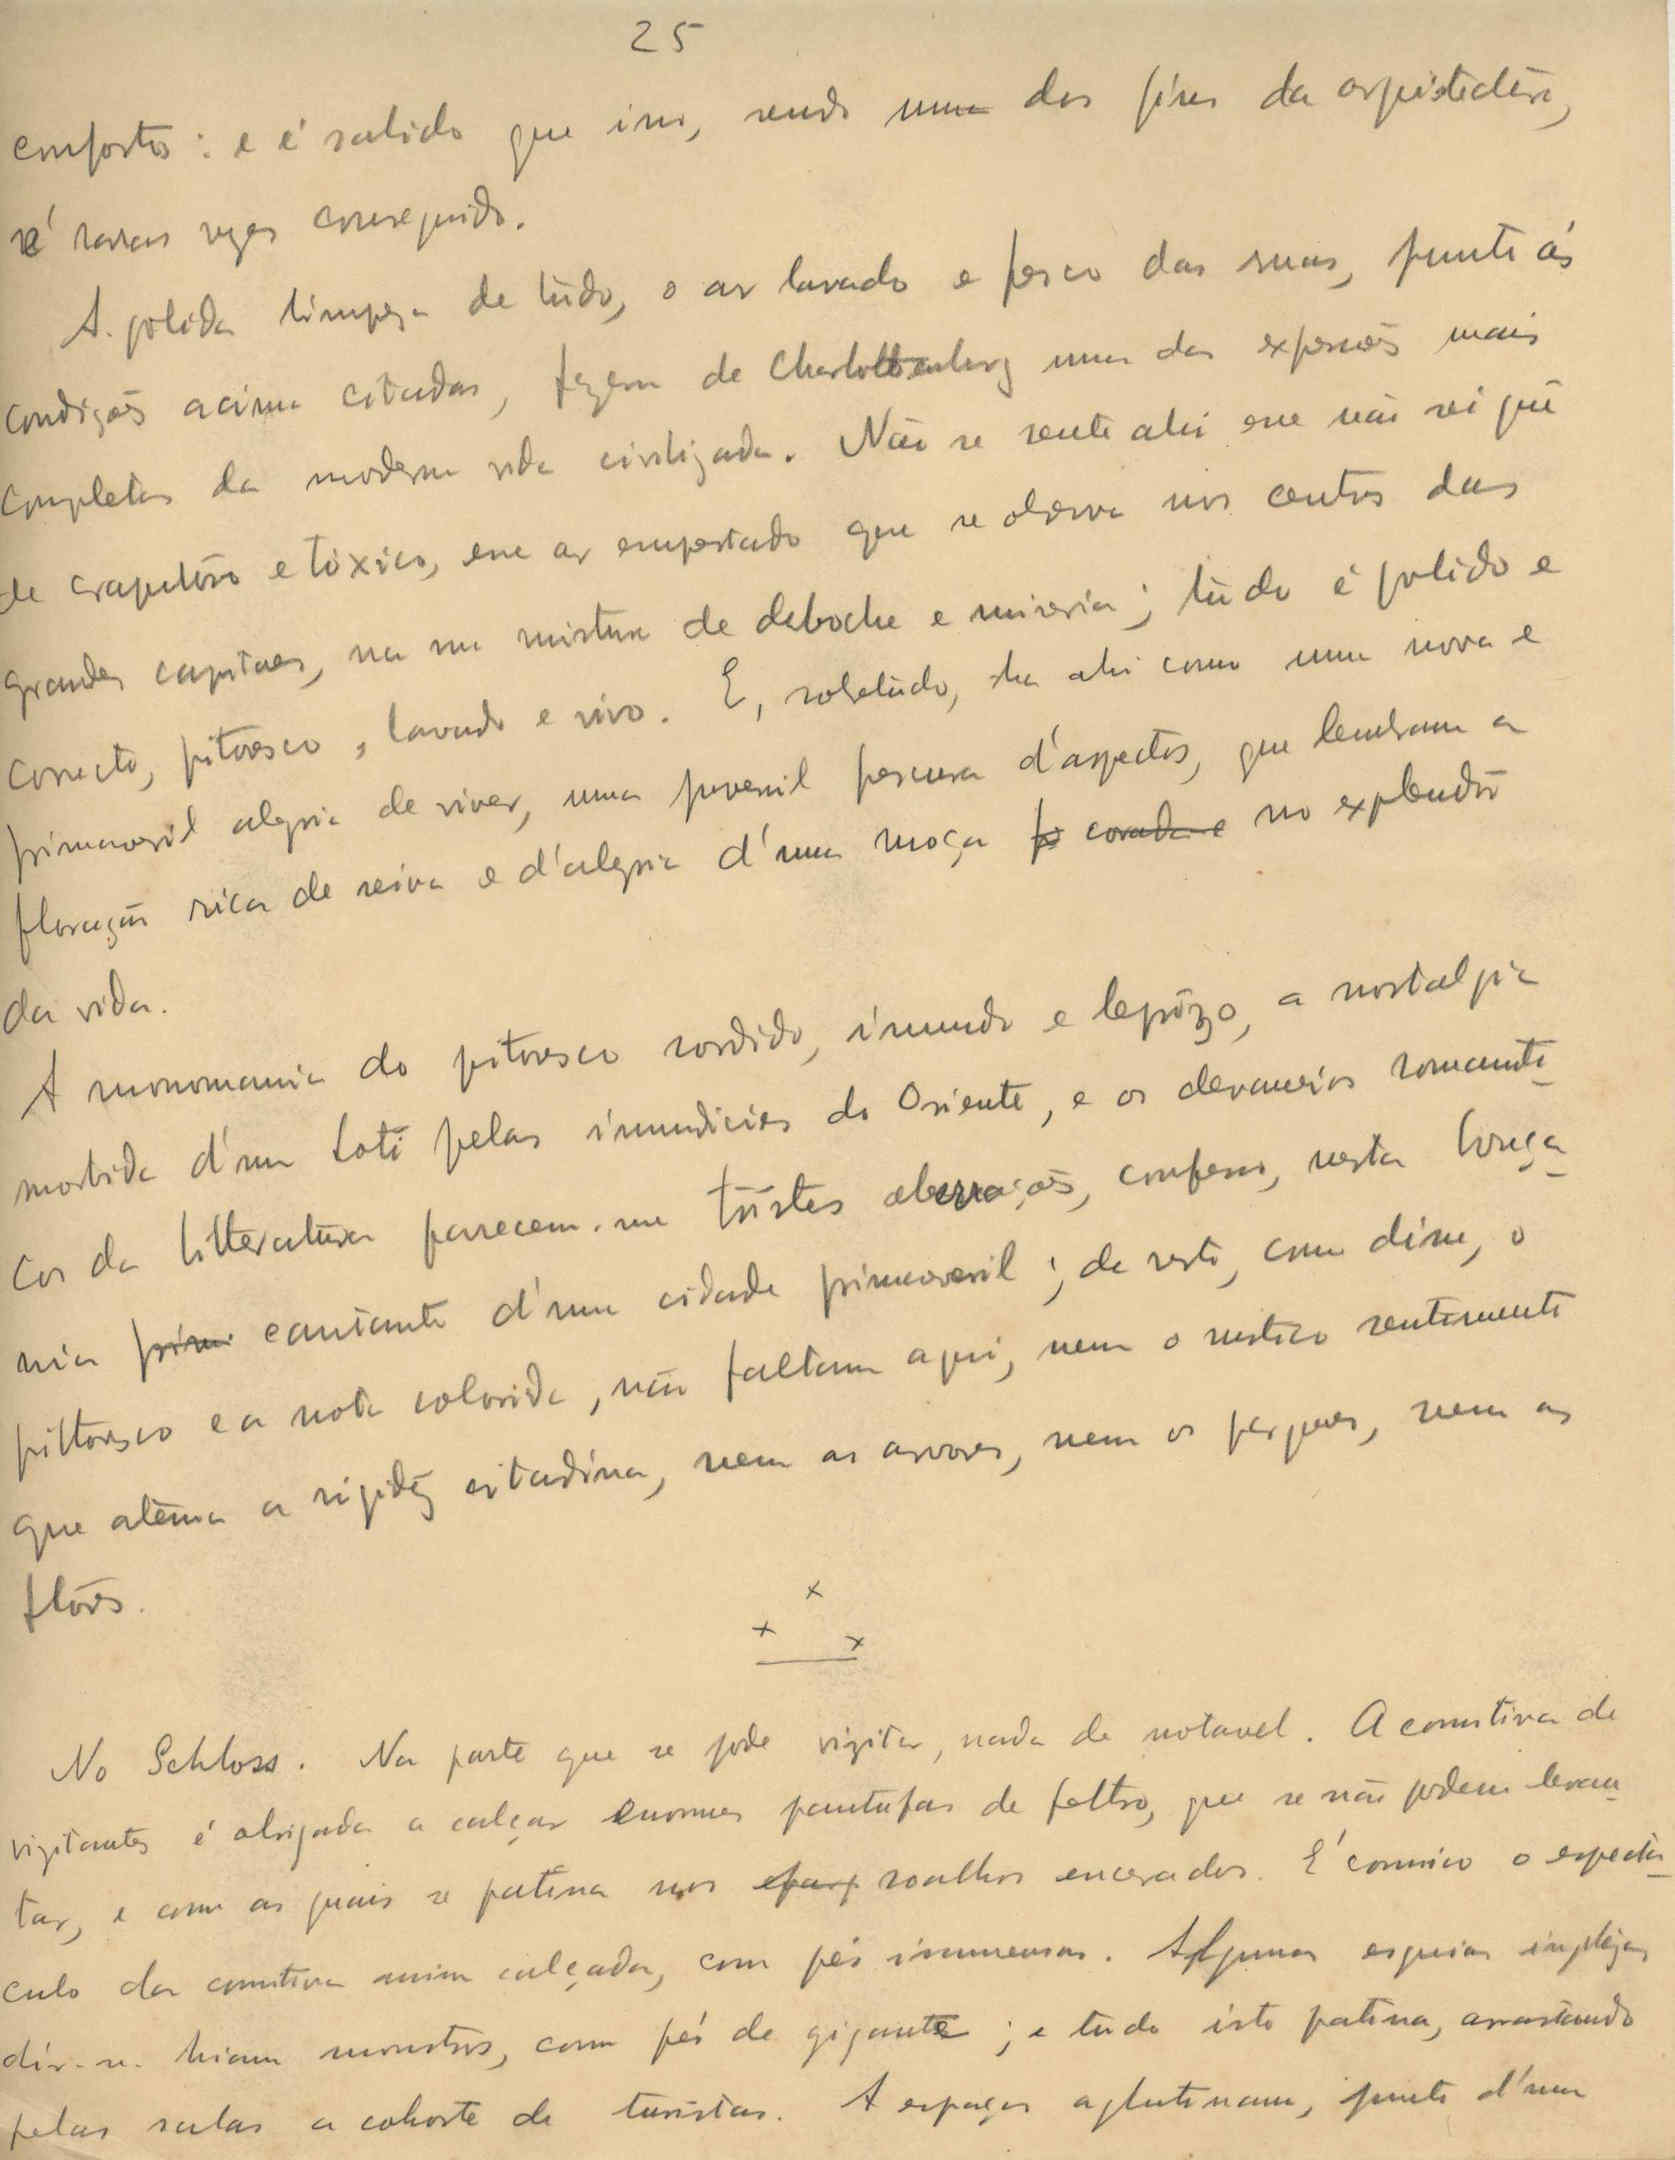 25
confortos: e é sabido que isso, sendo um dos fins da arquitectura,
é raras vezes conseguido.
A polida limpeza de tudo, o ar lavado e fresco das ruas, junto ás
condições acima citadas, fazem de Charlottenburg uma das expressões mais
completas da moderna vida civilizada. Não se sente ahi esse não sei quê
de crapuloso e toxico, esse ar empestado que se observa nos centros das
grandes capitaes, na sua mistura de deboche e miseria; tudo é polido e
correcto, pitoresco, lavado e vivo. E, sobretudo, ha ahi como uma nova e
primaveril alegria de viver, uma juvenil frescura d'aspectos, que lembram a
floração rica de seiva e d'alegria d'uma moça fr corada e no explendôr
da vida.
A monomania do pitoresco sordido, imundo e leprôzo, a nostalgia
morbida d'um Loti pelas imundicies do Oriente, e os devaneios romanti-
cos da litteratura parecem-me tristes aberrações, confesso, nesta louça-
nia prim cantante d'uma cidade primaveril; de resto, como disse, o
pittoresco e a nota colorida, não faltam aqui, nem o rustico sentimento
que atenua a rigidez citadina, nem as arvores, nem os parques, nem as
flôres.
x
x x
No Schloss. Na parte que se pode vizitar, nada de notavel. A comitiva de
vizitantes é obrigada a calçar enormes pantufas de feltro, que se não podem levan-
tar, e com as quais se patina nos soalhos encerados. É comico o espectá-
culo da comitiva assim calçada, com pés immensos. Algumas esguias inglezas
dir-se-hiam monstros, com pés de gigante; e tudo isto patina, arrastando
pelas salas a cohorte de turistas. A espaços aglutinam, junto d'uma